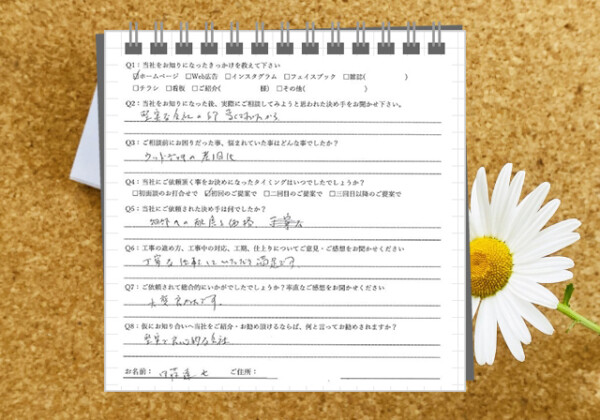 Q1：当社をお知りになったきっかけを教えて下さい
☑ホームページ □Web広告 □インスタグラム □フェイスブック □雑誌( )
□チラシ □看板 □ご紹介( 様) □その他( )
Q2：当社をお知りになった後、実際にご相談してみようと思われた決め手をお聞かせ下さい。
堅実な会社の
Q3：ご相談前にお困りだった事、悩まれていた事はどんな事でしたか？
ウッドデッキの老朽化
Q4：当社にご依頼頂く事をお決めになったタイミングはいつでしたでしょうか？
□初面談のお打合せで ☑初回のご提案で □二回目のご提案で □三回目以降のご提案で
Q5：当社にご依頼された決め手は何でしたか？
の態度と価格
Q6：工事の進め方、工事中の対応、工期、仕上りについてご意見・ご感想をお聞かせください
丁寧な仕事をしていただき満足です。
Q7：ご依頼されて総合的にいかがでしたでしょうか？率直なご感想をお聞かせください
大変良かったです。
Q8：仮にお知り合いへ当社をご紹介・お勧め頂けるならば、何と言ってお勧めされますか？
堅実で良心的な会社
お名前： ご住所：